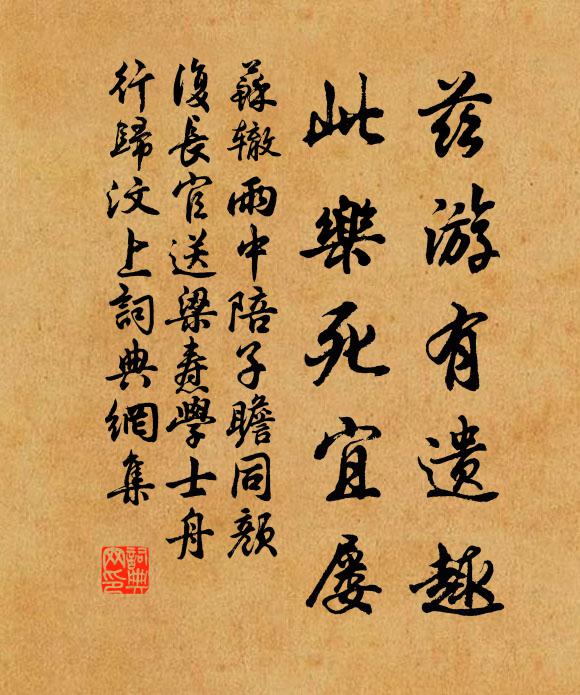 茲游有遺趣
此樂死宜屡
蘇辙雨中陪子瞻同顏
復長官送梁燾學士舟
行歸汶上詞典網集
詞典網印